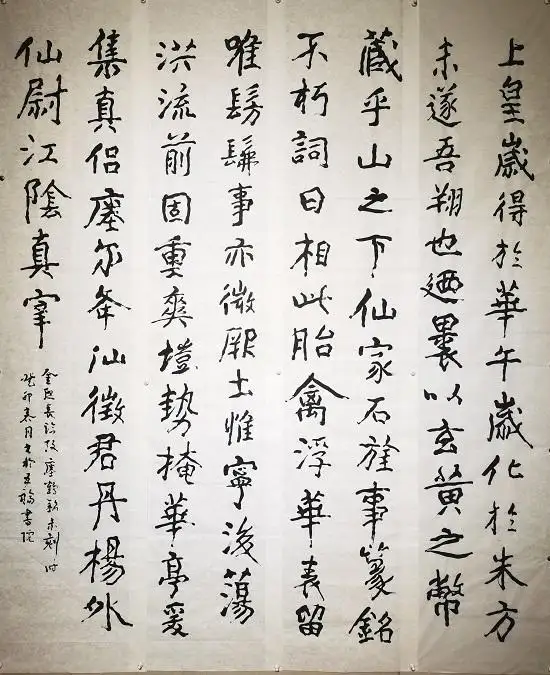 上皇歲得於華午歲化於朱方
未遂吾翔也廼裹以玄黃之幣
藏乎山之下仙家石旌事篆銘
不朽詞曰相此胎禽浮華表留
唯髣髴事亦微厥土惟寧後蕩
洪流前固重爽塏勢掩華亭爰
集真侶瘞尔夅汕徵君丹楊外
仙尉江陰真宰
癸卯月书於書院